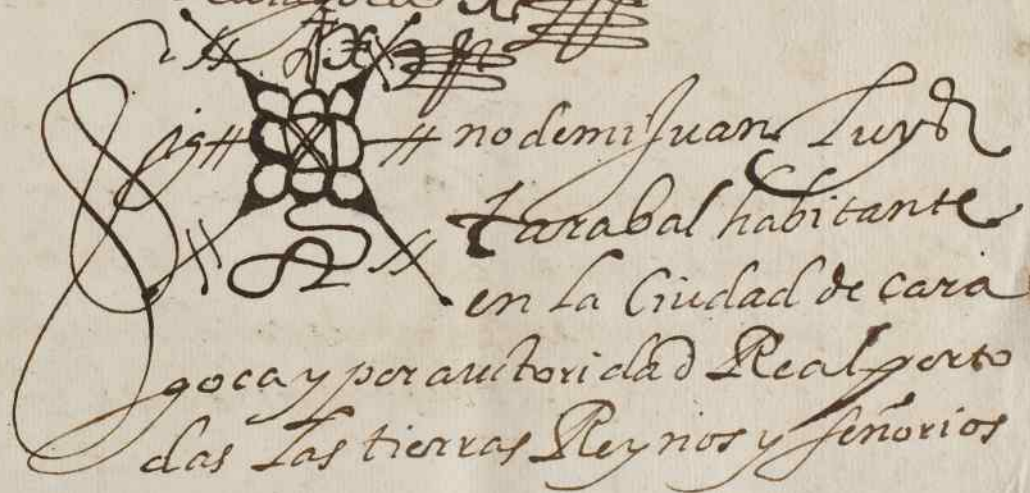 Sig no de mi Juan Luys
Tarabal habitante
en la Ciudad de çara
goça y por auctoridad Real por to
das las tierras Reynos y señorios